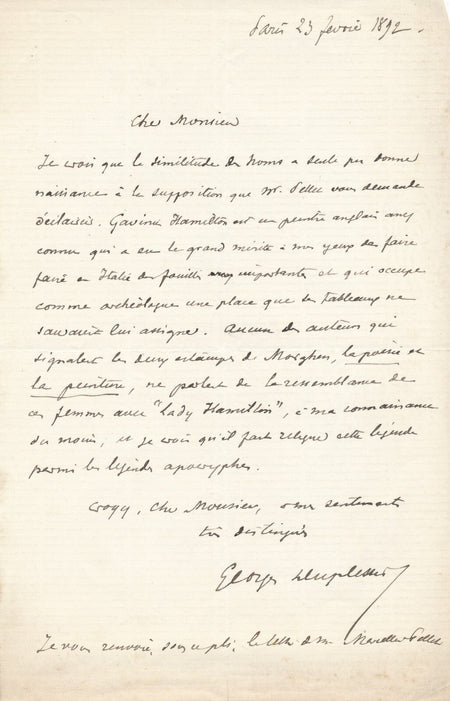 Paris 23 fevrier 1892.
Cher Monsieur
Je crois que la similitude de noms a seule pu donner
naissance à la supposition que Mr. Pellet vous demande
d'éclaircir. Gavinus Hamilton est un peintre anglais assez
connu qui a eu le grand mérite à mes yeux de faire
faire en Italie des fouilles importantes et qui occupe
comme archéologue une place que ses tableaux ne
sauraient lui assigner. Aucun des auteurs qui
signalent les deux estampes de Morghen, la poésie et
la peinture, ne parlent de la ressemblance de
ces femmes avec "Lady Hamilton", à ma connaissance
du moins, et je crois qu'il faut reléguer cette légende
parmi les légendes apocryphes.
Croyez, cher Monsieur, à mes sentiments
très distingués
Georges Duplessis
Je vous renvoie, sous ce pli, la lettre de Mr Marcellin Pellet